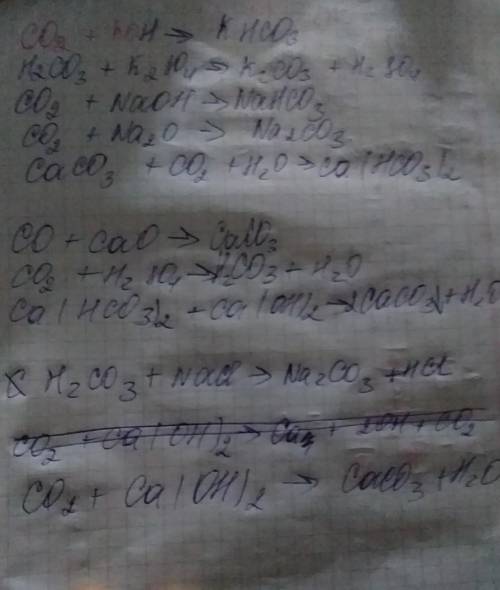 CO₂ + KOH → KHCO₃
H₂CO₃ + K₂SO₄ → K₂CO₃ + H₂SO₄
CO₂ + NaOH → NaHCO₃
CO₂ + Na₂O → Na₂CO₃
CaCO₃ + CO₂ + H₂O → Ca(HCO₃)₂
CO + CaO → CaCO₃
CO₂ + H₂SO₄ → H₂CO₃ + H₂O
Ca(HCO₃)₂ + Ca(OH)₂ → 2CaCO₃↓ + H₂O
H₂CO₃ + NaCl → Na₂CO₃ + HCl
CO₂ + Ca(OH)₂ → + 2OH + CO₂
CO₂ + Ca(OH)₂ → CaCO₃ + H₂O